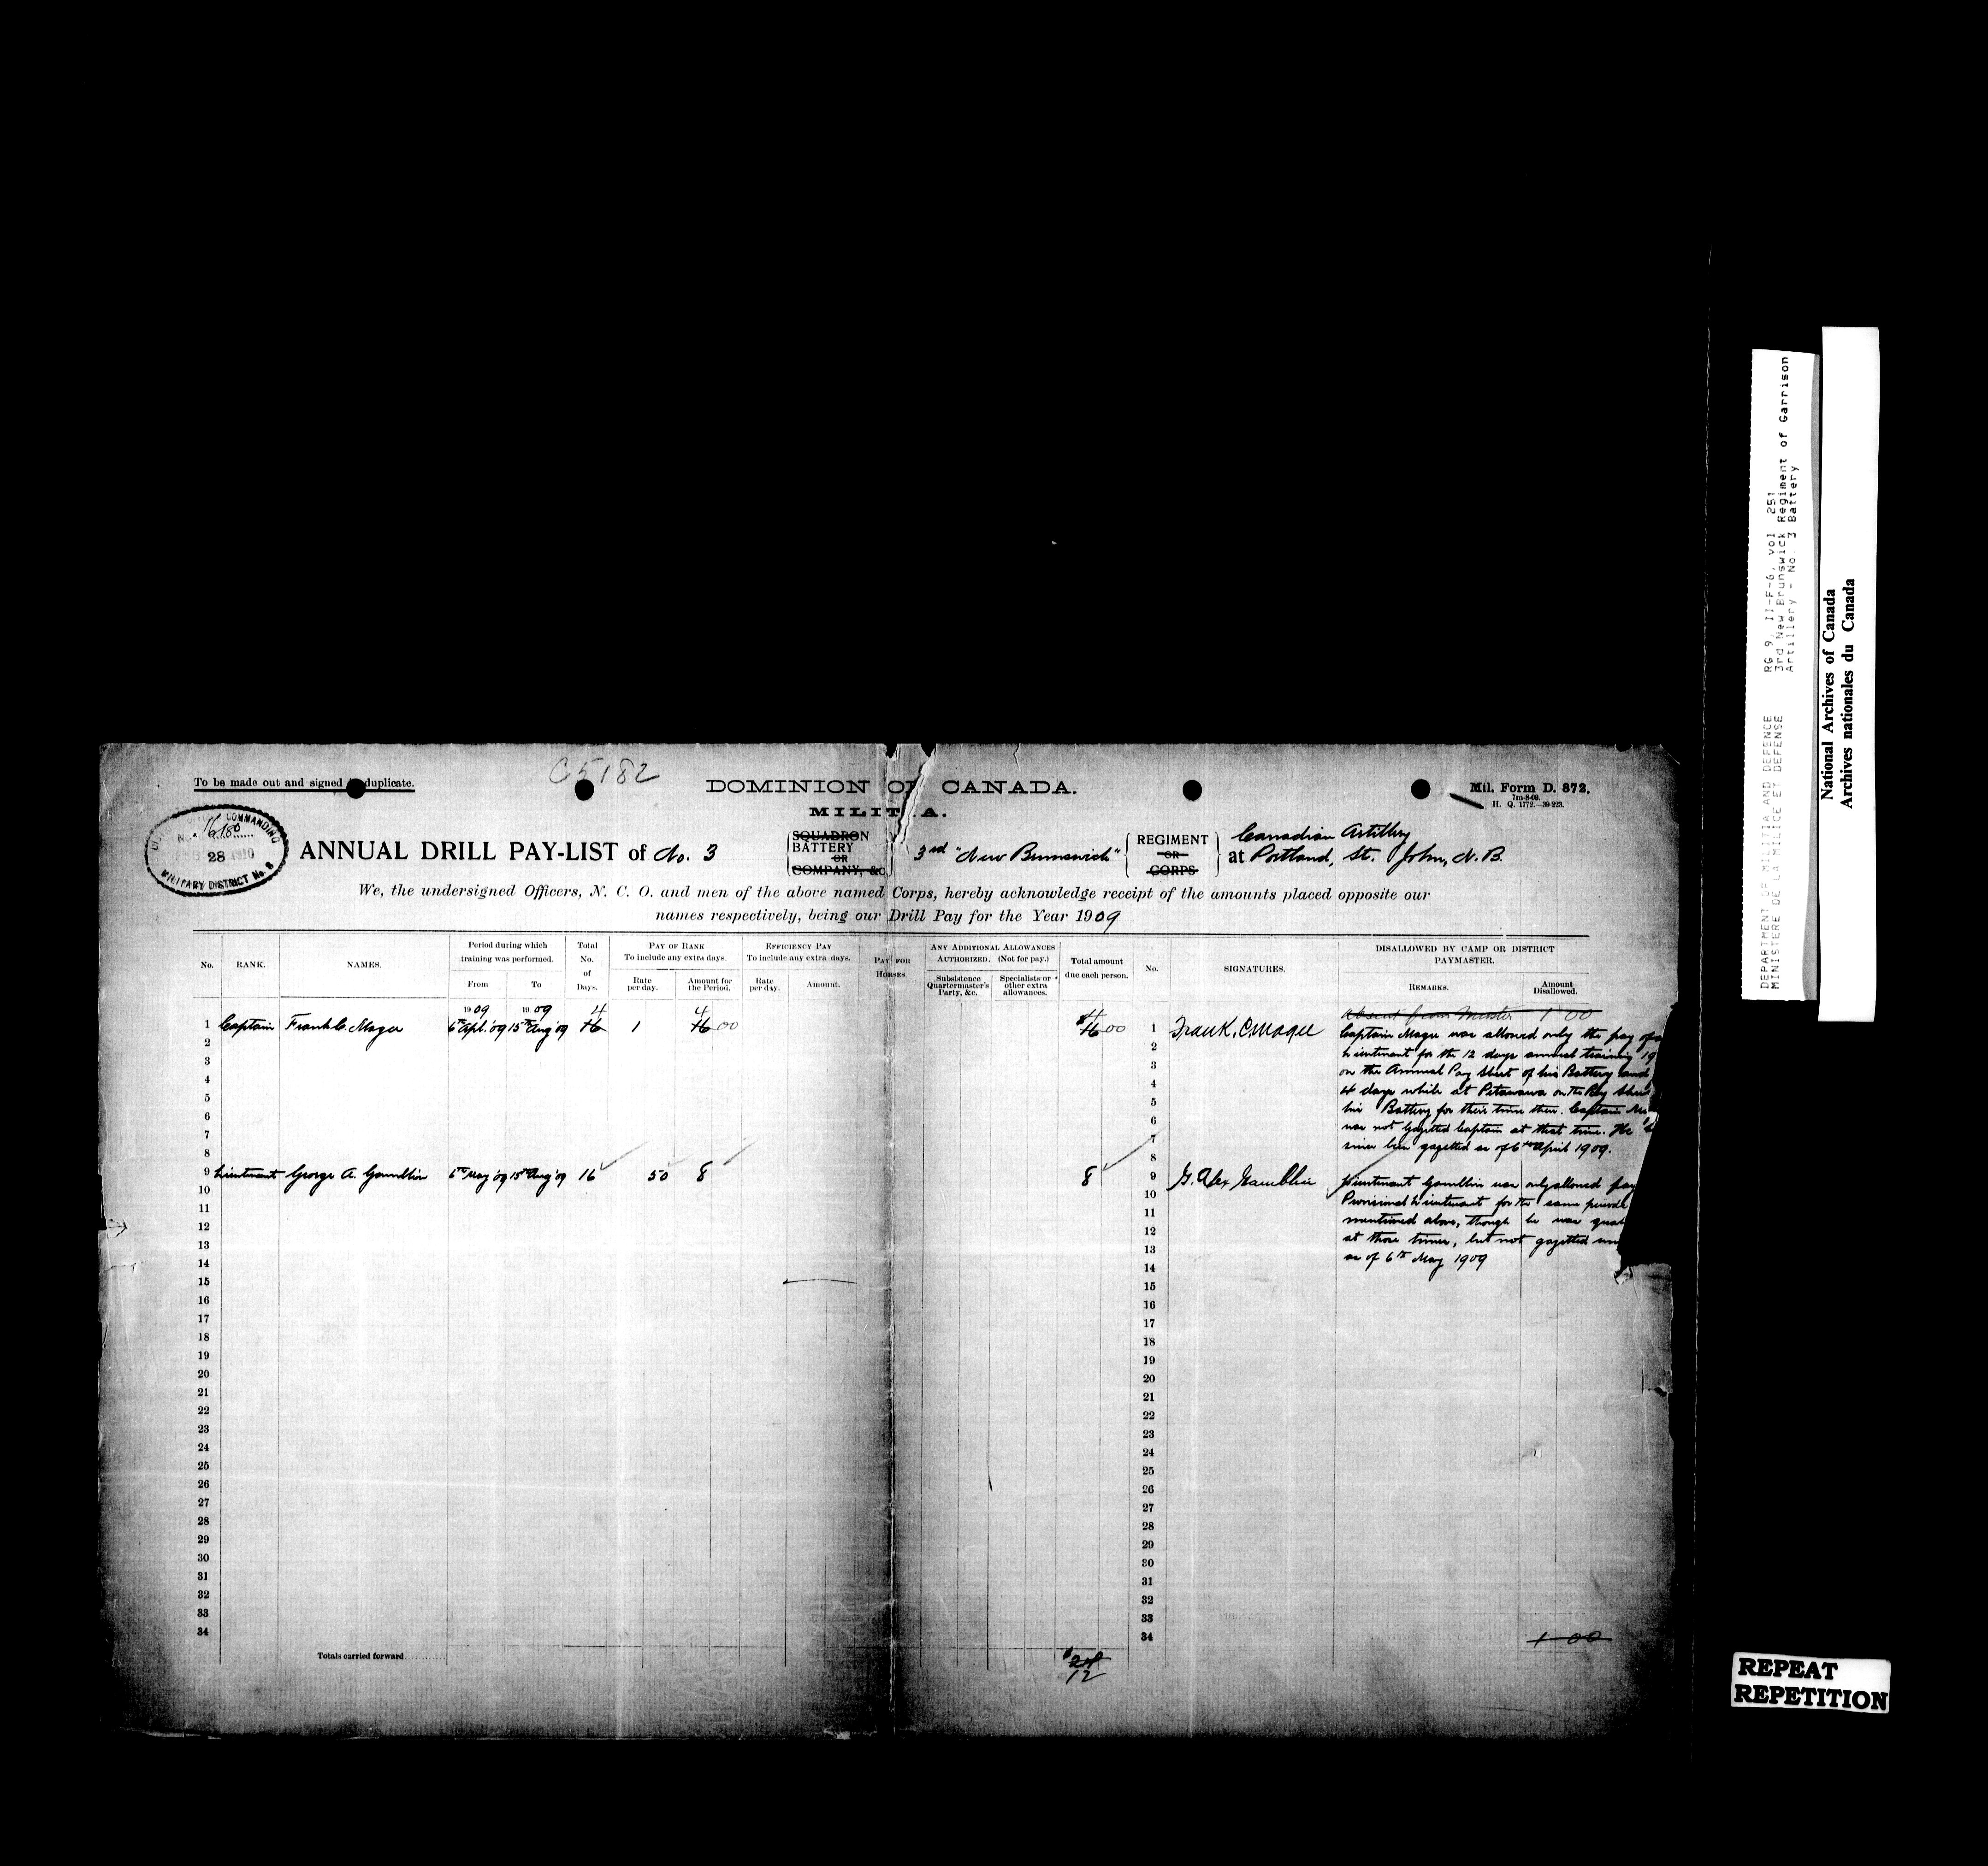 To be made out and signed duplicate.
C5182
DOMINION OF CANADA.
MILITIA.
Mil. Form D. 872.
7m-8-09.
H. Q. 1772.—39-223.
COMMANDING
No. 16180
28 1910
MILITARY DISTRICT No. 8
ANNUAL DRILL PAY-LIST of No. 3
SQUADRON
BATTERY
OR
COMPANY, &c
3rd "New Brunswick"
REGIMENT
OR
CORPS
Canadian Artillery
at Portland, St. John, N.B.
We, the undersigned Officers, N. C. O. and men of the above named Corps, hereby acknowledge receipt of the amounts placed opposite our
names respectively, being our Drill Pay for the Year 1909
No. RANK. NAMES. Period during which training was performed. From To Total No. of Days. PAY OF RANK To include any extra days. Rate per day. Amount for the Period. EFFICIENCY PAY To include any extra days. Rate per day. Amount. PAY FOR HORSES. ANY ADDITIONAL ALLOWANCES AUTHORIZED. (Not for pay.) Subsistence Quartermaster's Party, &c. Specialists or other extra allowances. Total amount due each person. No. SIGNATURES. DISALLOWED BY CAMP OR DISTRICT PAYMASTER. REMARKS. Amount Disallowed.
1909 1909 4 4 $4 Absent from Muster 1 00
1 Captain Frank C. Magee 6th Apl. '09 15th Aug '09 16 1 16 00 16 00 1 Frank. C. Magee Captain Magee was allowed only the pay of a
2 2 Lieutenant for the 12 days annual training 19
3 3 on the Annual Pay Sheet of his Battery and
4 4 4 days while at Petawawa on the Pay Sheet
5 5 his Battery for their time then. Captain Ma
6 6 was not gazetted Captain at that time. He
7 7 since been gazetted as of 6th April 1909.
8 8
9 Lieutenant George A. Gamblin 6th May '09 15th Aug '09 16 50 8 8 9 G. Alex Gamblin Lieutenant Gamblin was only allowed pay
10 10 Provisional Lieutenant for the same period
11 11 mentioned above, though he was qual
12 12 at those times, but not gazetted un
13 13 as of 6th May 1909
14 14
15 15
16 16
17 17
18 18
19 19
20 20
21 21
22 22
23 23
24 24
25 25
26 26
27 27
28 28
29 29
30 30
31 31
32 32
33 33
34 34
1 00
Totals carried forward $24
12
DEPARTMENT OF MILITIA AND DEFENCE RG 9, II-F-6, vol 251
MINISTERE DE LA MILICE ET DEFENSE 3rd New Brunswick Regiment of Garrison
Artillery - No. 3 Battery
National Archives of Canada
Archives nationales du Canada
REPEAT
REPETITION